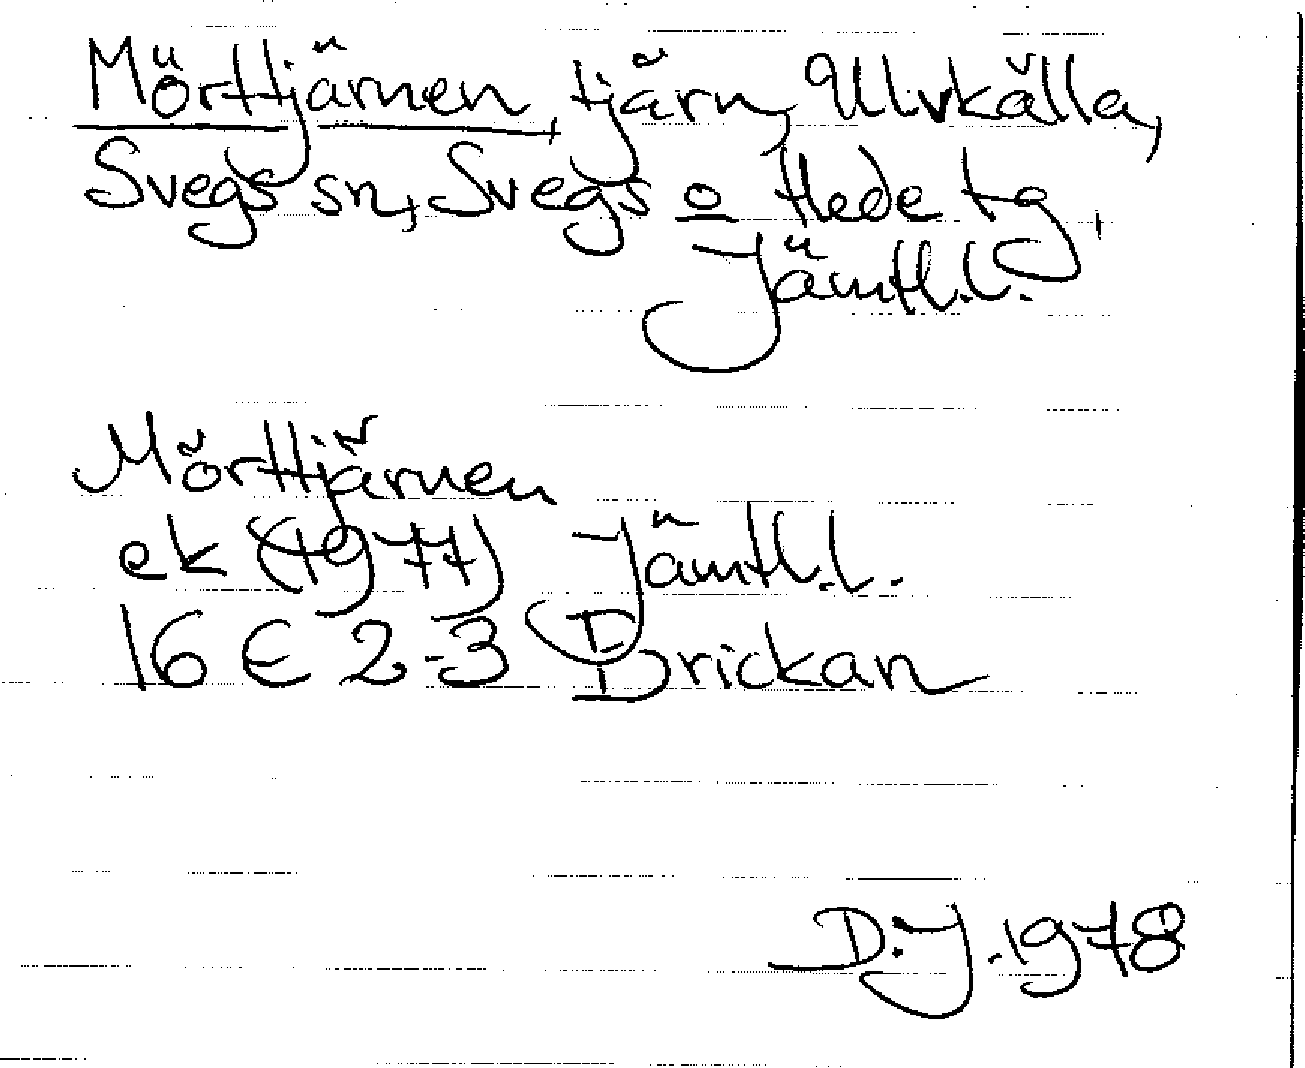 Mörttjärnen, tjärn, Ulvkälla,
Svegs sn, Svegs o Hede tg,
Jämtl.l.
Mörttjärnen
ek (1977) Jämtl.l.
16 E 2-3 Drickan
D.J. 1978